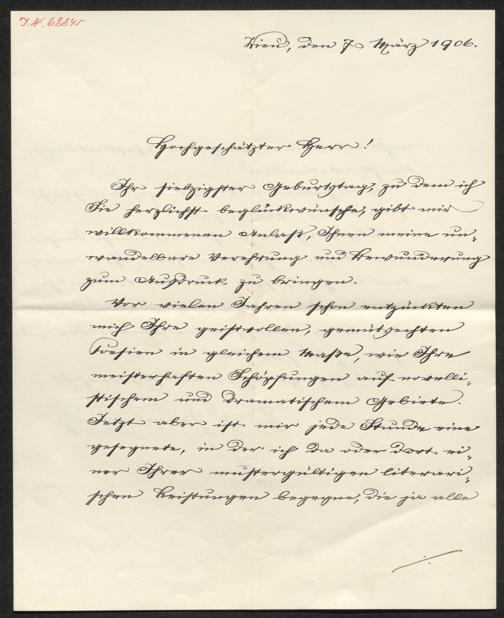 J.N. 68845
Wien, den 7. März 1906.
Hochgeschätzter Herr!
Ihr siebzigster Geburtstag, zu dem ich
Sie herzlichst beglückwünsche, gibt mir
willkommenen Anlaß, Ihnen meine un-
wandelbare Verehrung und Bewunderung
zum Ausdruck zu bringen.
Vor vielen Jahren schon entzückten
mich Ihre geistvollen, gemütsechten
Poesien in gleichem Maße, wie Ihre
meisterhaften Schöpfungen auf novelli-
stischem und dramatischem Gebiete.
Jetzt aber ist mir jede Stunde eine
gesegnete, in der ich da oder dort ei-
ner Ihrer mustergültigen literari-
schen Leistungen begegne, die ja alle